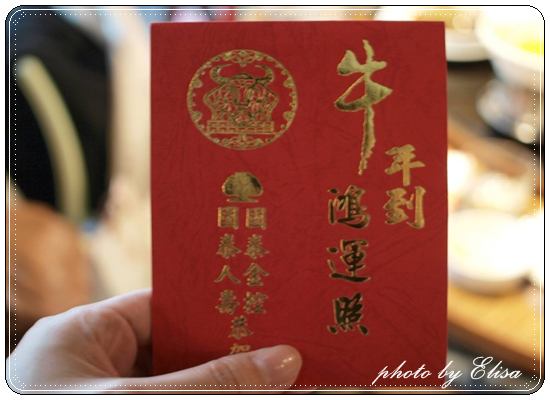 牛年到
鴻運照
國泰金控
國泰人壽恭賀
photo by Elisa